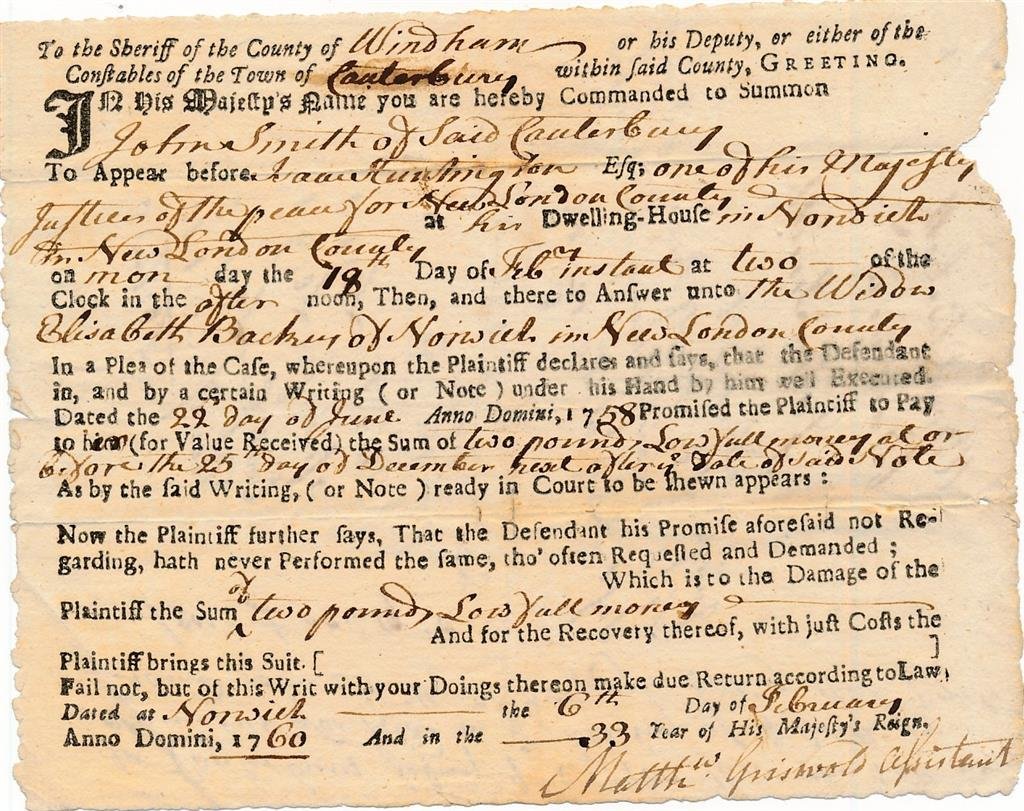 To the Sheriff of the County of Windham or his Deputy, or either of the
Conſtables of the Town of Canterbury within ſaid County, GREETING.
IN His Majeſty's Name you are hereby Commanded to Summon
John Smith of Said Canterbury
To Appear before Isaac Huntington Eſq; one of his Majesty
Justices of the peace for New London County
at his Dwelling-Houſe in Norwich
in New London County
on mon day the 18th Day of Febry instant at two of the
Clock in the after noon, Then, and there to Anſwer unto the Widow
Elisabeth Backus of Norwich in New London County
In a Plea of the Caſe, whereupon the Plaintiff declares and ſays, that the Defendant
in, and by a certain Writing (or Note) under his Hand by him well Executed.
Dated the 22d day of June Anno Domini, 1758 Promiſed the Plaintiff to Pay
to her (for Value Received) the Sum of two pounds Lowfull money at or
before the 25th day of December next after ye Date of said Note
As by the ſaid Writing, (or Note) ready in Court to be ſhewn appears:
Now the Plaintiff further ſays, That the Defendant his Promiſe aforeſaid not Re-
garding, hath never Performed the ſame, tho' often Requeſted and Demanded;
Which is to the Damage of the
Plaintiff the Sum of two pounds Lowfull money
And for the Recovery thereof, with juſt Coſts the
Plaintiff brings this Suit. [ ]
Fail not, but of this Writ with your Doings thereon make due Return according to Law.
Dated at Norwich the 6th Day of February
Anno Domini, 1760 And in the 33 Year of His Majeſty's Reign.
Matthw Griswold Assistant